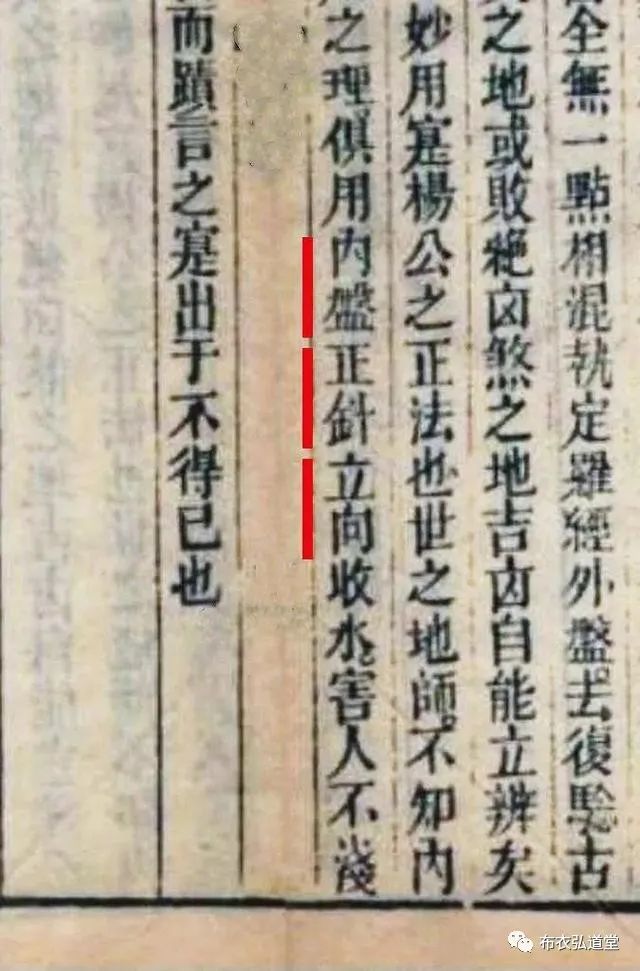 全無一點相混執定羅經外盤。去復騐古
之地或敗絕凶煞之地吉凶自能立辨矣
妙用寔楊公之正法也、世之地師。不知內
之理、俱用內盤正針立向收水。害人不淺
而蹟言之寔出于不得已也
布衣弘道堂